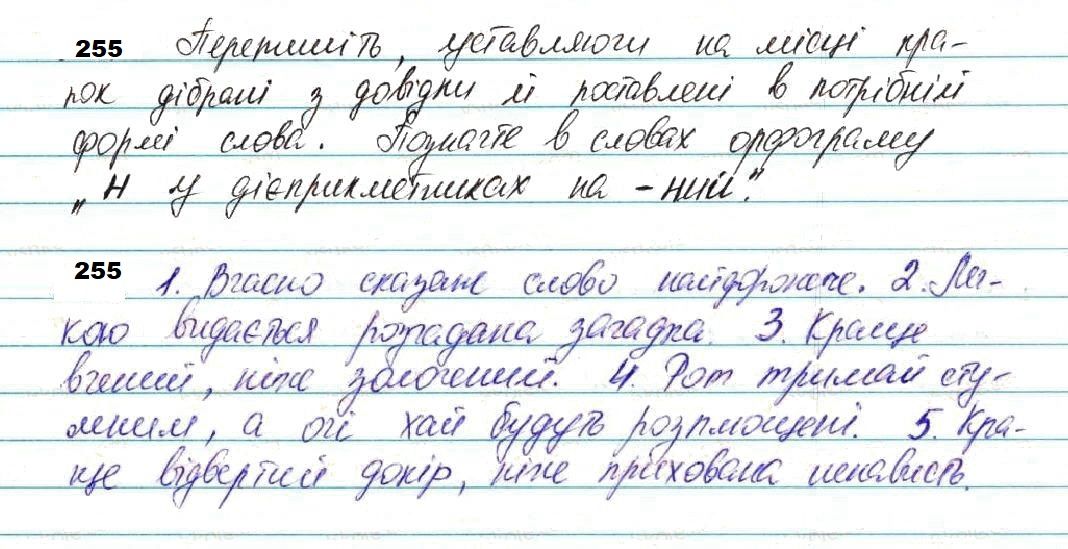 255 Перепишіть, уставляючи на місці кра-
пок дібрані з довідки й поставлені в потрібній
формі слова. Позначте в словах орфограму
„Н у дієприкметниках на -ний".
255 1. Вчасно сказане слово найдорожче. 2. Лег-
кою видається розгадана загадка. 3. Краще
вчений, ніж золочений. 4. Рот тримай сту-
леним, а очі хай будуть розплющені. 5. Кра-
ще відвертий докір, ніж прихована ненависть.